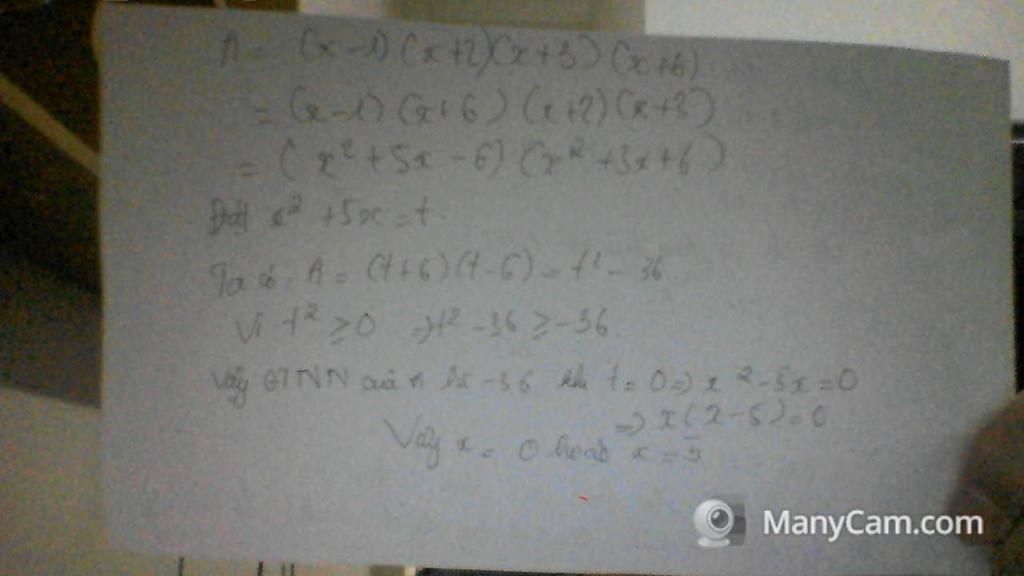 A = (x-1)(x+2)(x+3)(x+6)
= (x-1)(x+6)(x+2)(x+3)
= (x² + 5x - 6)(x² + 3x + 6)
Đặt x² + 5x = t
Ta có: A = (t+6)(t-6) = t² - 36
Vì t² ≥ 0 ⇒ t² - 36 ≥ -36
Vậy GTNN của A là -36 khi t = 0 ⇒ x² - 5x = 0
⇒ x(x-5) = 0
Vậy x = 0 hoặc x = 5
ManyCam.com